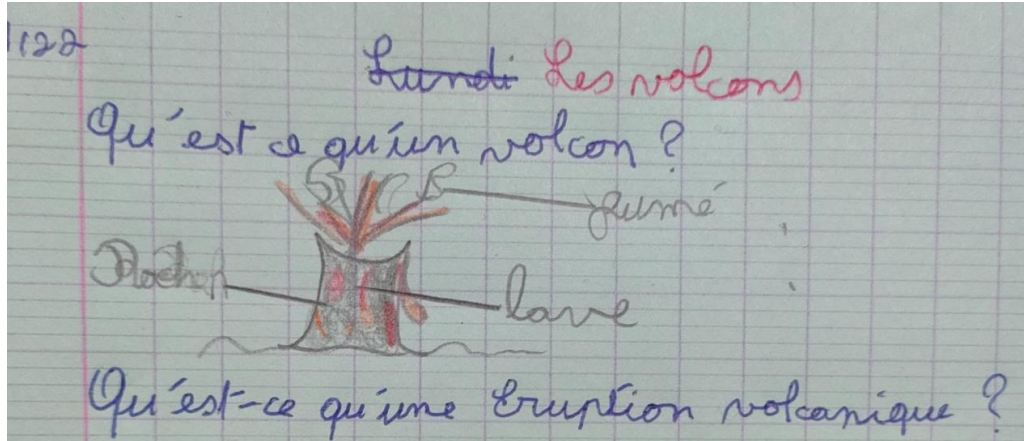 1122
~~Lundi~~ Les volcons
Qu'est ce qu'un volcon ?
fumé
Rocher
lave
Qu'est-ce qu'une éruption volcanique ?